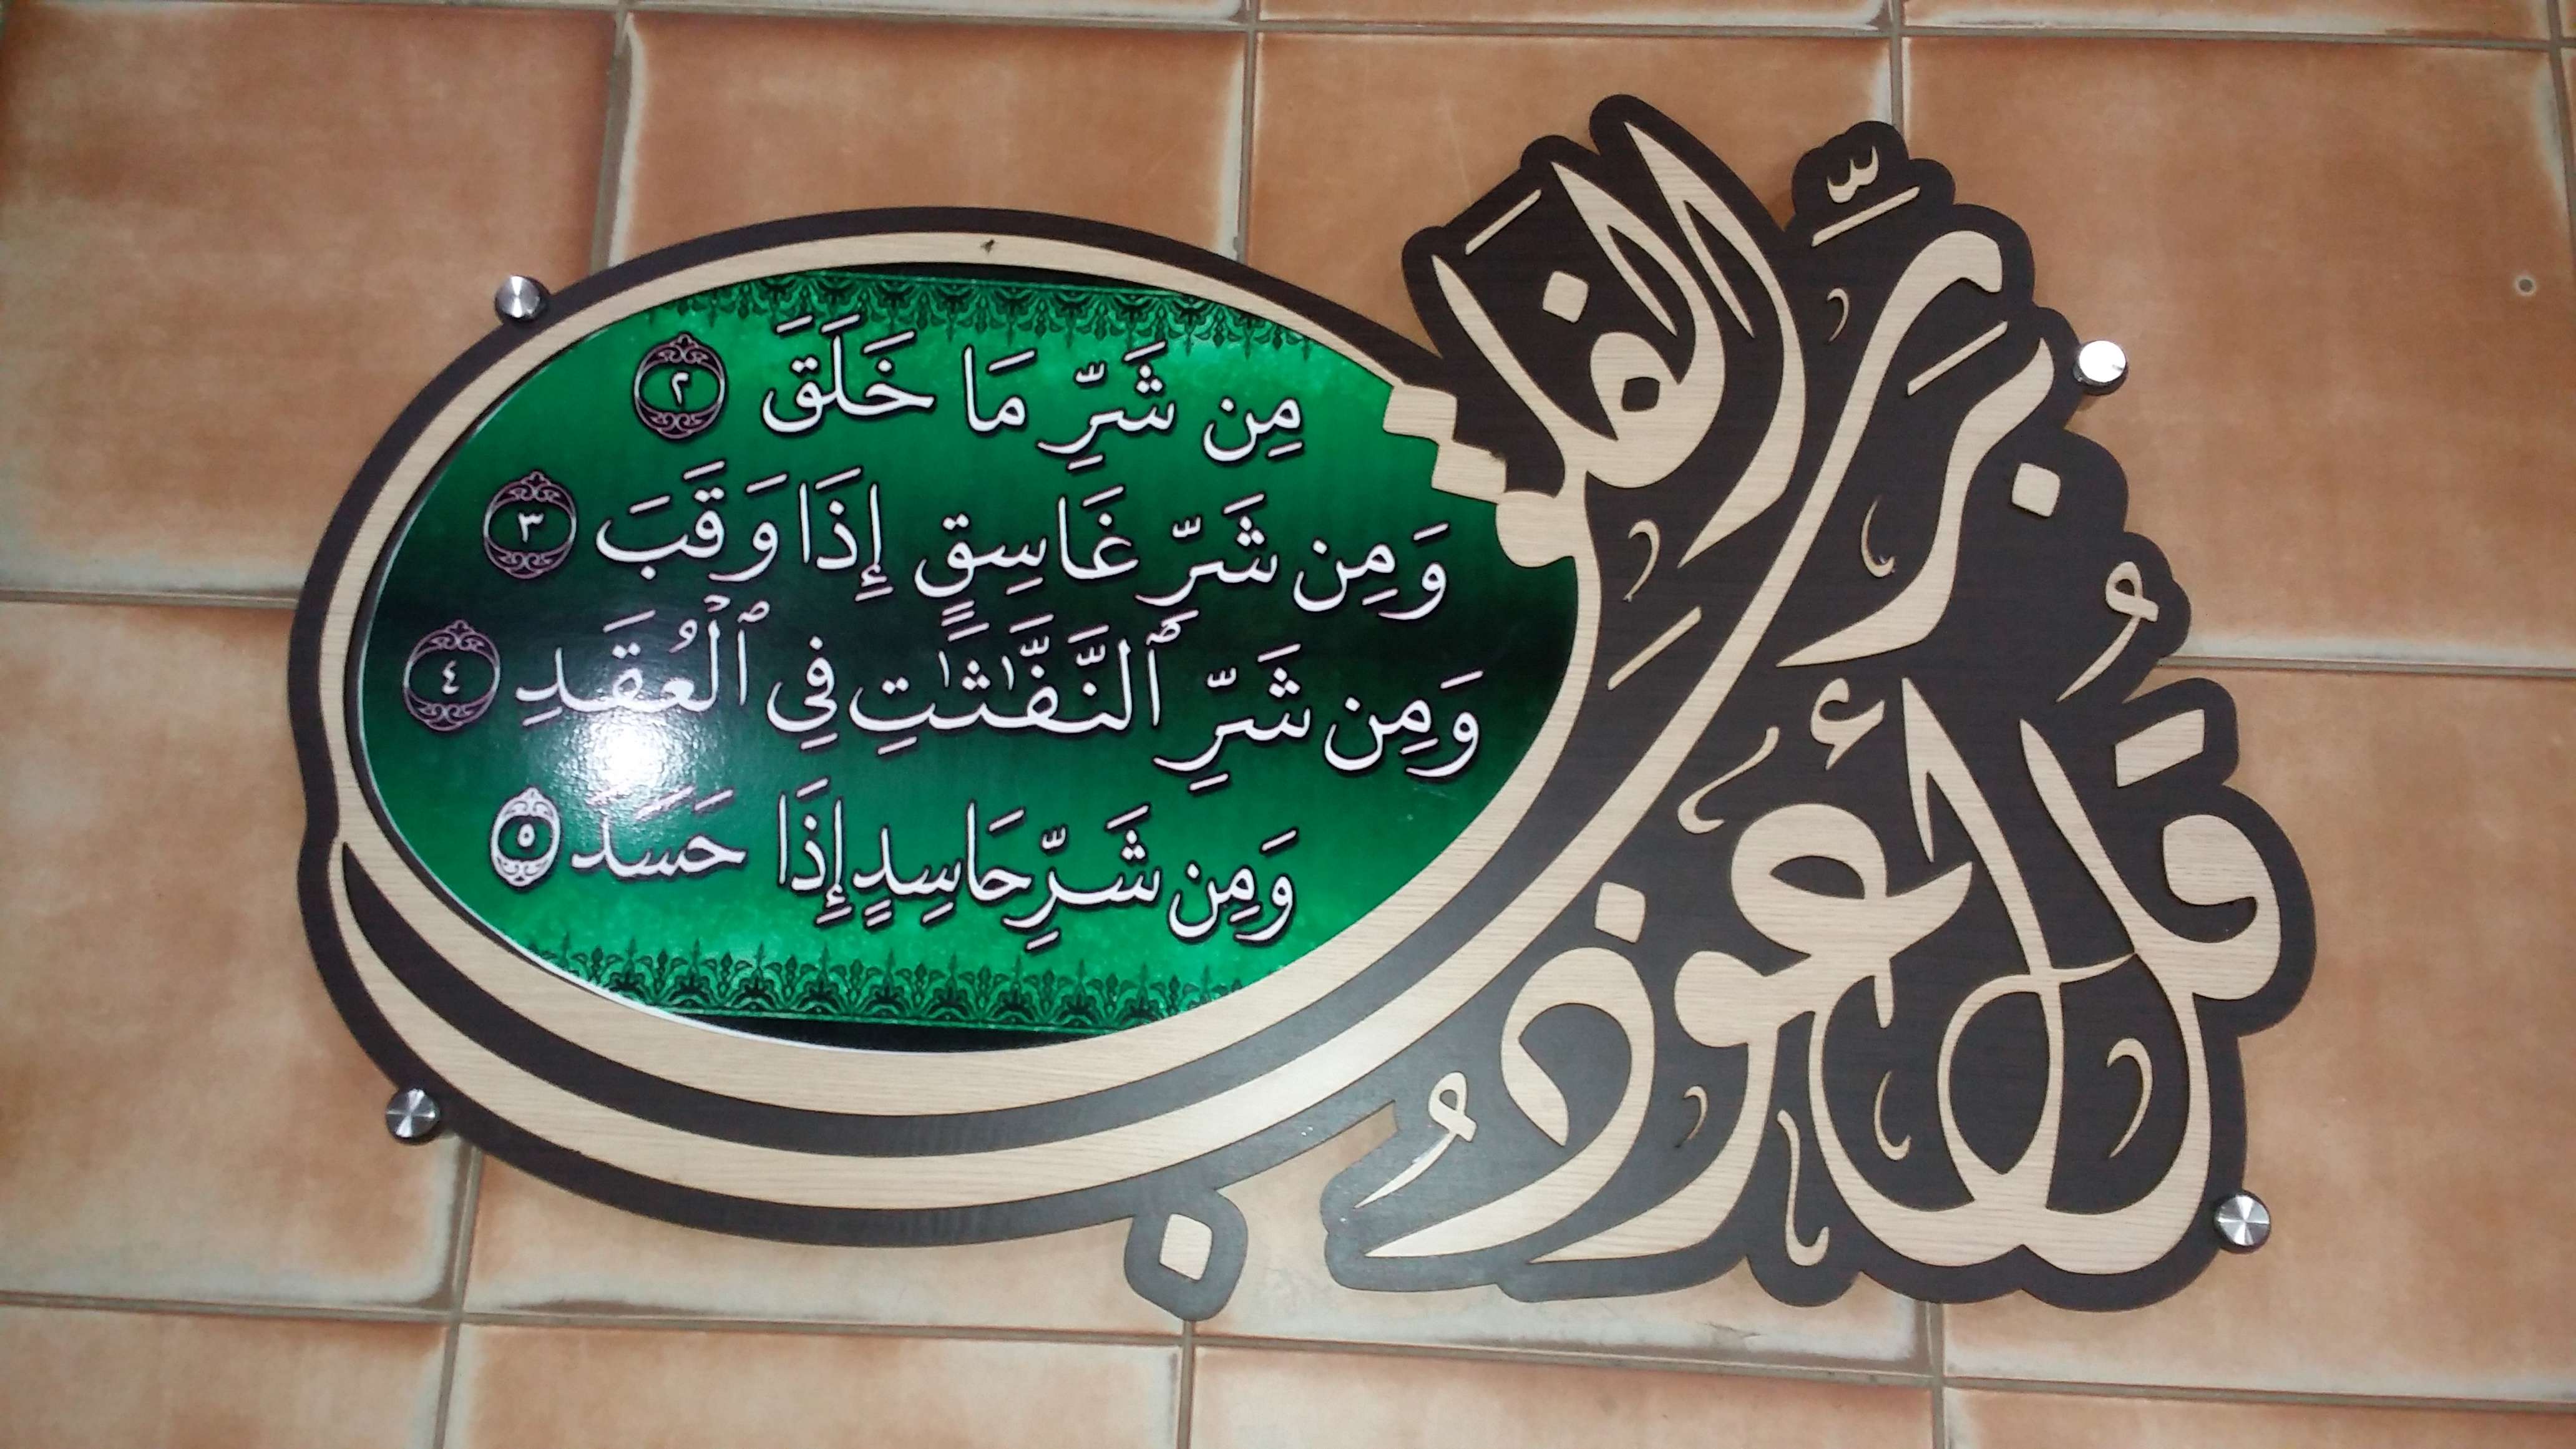 قُلْ أَعُوذُ بِرَبِّ الْفَلَقِ
مِن شَرِّ مَا خَلَقَ ٢
وَمِن شَرِّ غَاسِقٍ إِذَا وَقَبَ ٣
وَمِن شَرِّ ٱلنَّفَّـٰثَـٰتِ فِي ٱلْعُقَدِ ٤
وَمِن شَرِّ حَاسِدٍ إِذَا حَسَدَ ٥